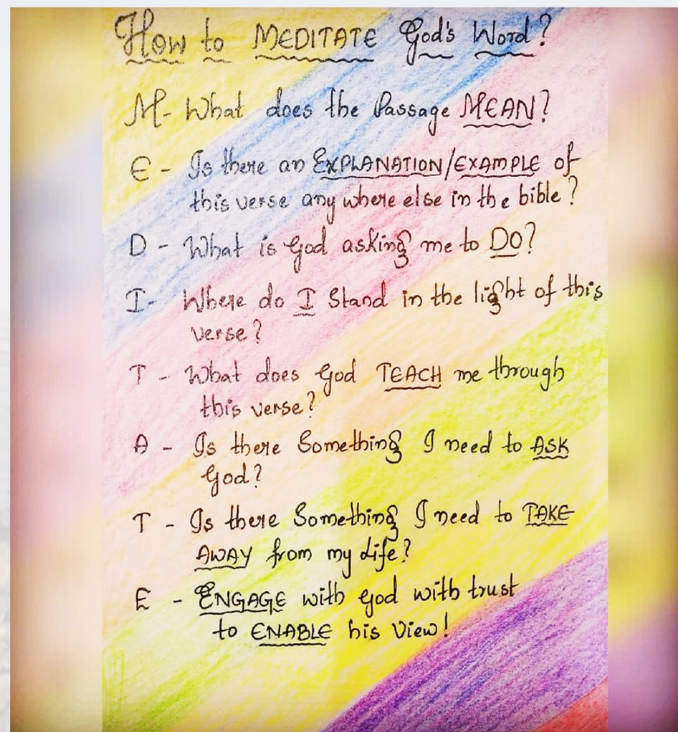 How to MEDITATE God's Word?
M- What does the Passage MEAN?
E - Is there an EXPLANATION/EXAMPLE of
this verse any where else in the bible?
D - What is God asking me to DO?
I- Where do I Stand in the light of this
verse?
T - What does God TEACH me through
this verse?
A - Is there Something I need to ASK
God?
T - Is there Something I need to TAKE
AWAY from my Life?
E - ENGAGE with God with trust
to ENABLE his View!